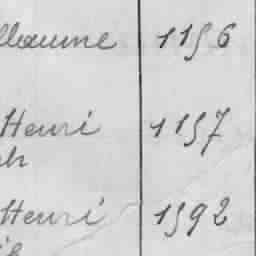 llaume 1156
Henri 1157
Henri 1592